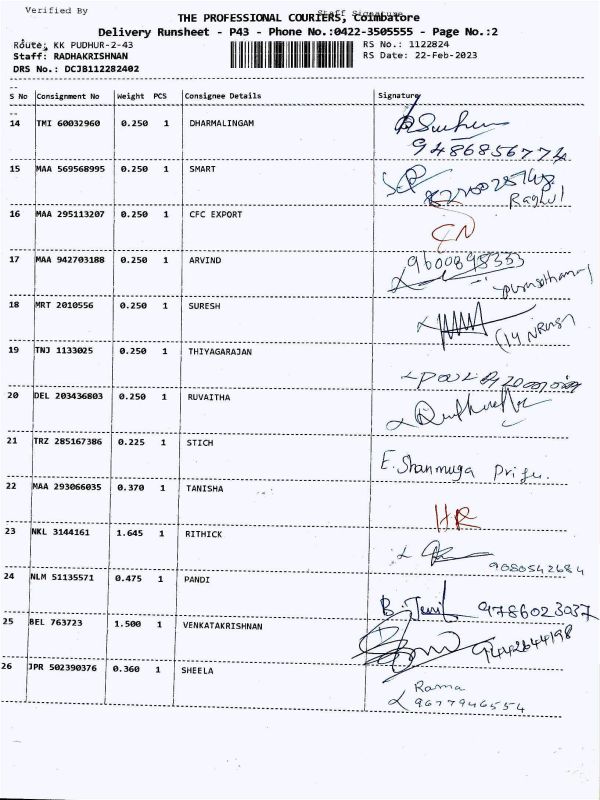 Verified By Staff Signature
THE PROFESSIONAL COURIERS, Coimbatore
Delivery Runsheet - P43 - Phone No.:0422-3505555 - Page No.:2
Route: KK PUDHUR-2-43 RS No.: 1122824
Staff: RADHAKRISHNAN RS Date: 22-Feb-2023
DRS No.: DCJB112282402
S No Consignment No Weight PCS Consignee Details Signature
14 TMI 60032960 0.250 1 DHARMALINGAM
9486856774
15 MAA 569568995 0.250 1 SMART
Raghul
16 MAA 295113207 0.250 1 CFC EXPORT
CN
17 MAA 942703188 0.250 1 ARVIND 9600895333
18 MRT 2010556 0.250 1 SURESH
19 TNJ 1133025 0.250 1 THIYAGARAJAN
20 DEL 203436803 0.250 1 RUVAITHA
21 TRZ 285167386 0.225 1 STICH
E. Shanmuga Priya.
22 MAA 293066035 0.370 1 TANISHA
HR
23 NKL 3144161 1.645 1 RITHICK
9080542684
24 NLM 51135571 0.475 1 PANDI
9786023037
25 BEL 763723 1.500 1 VENKATAKRISHNAN
9442644198
26 JPR 502390376 0.360 1 SHEELA
Rama
9677946554